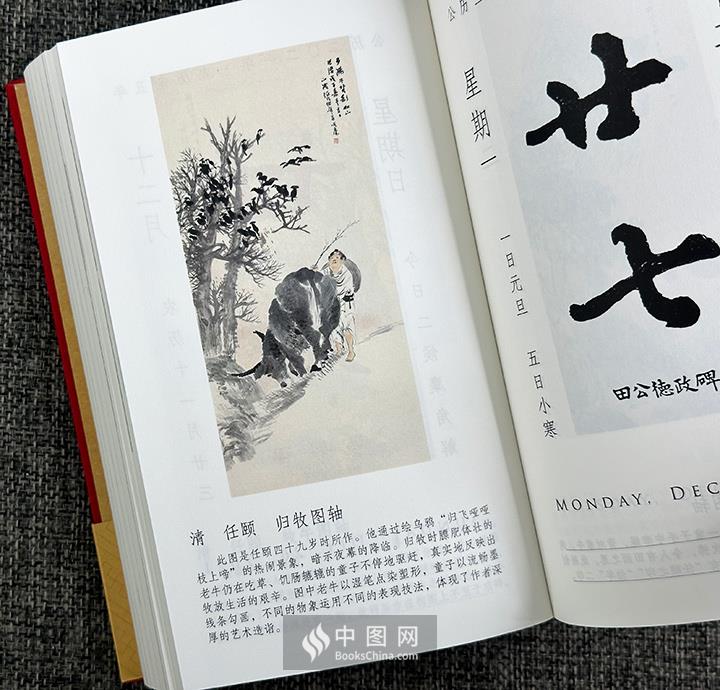 清 任颐 归牧图轴
此图是任颐四十九岁时所作。他通过绘乌鸦“归飞哑哑
枝上啼”的热闹景象，暗示夜幕的降临。归牧时膘肥体壮的
老牛仍在吃草、饥肠辘辘的童子不停地驱赶，真实地反映出
牧放生活的艰辛。图中老牛以湿笔点染塑形，童子以流畅墨
线条勾画，不同的物象运用不同的表现技法，体现了作者深
厚的艺术造诣。
公历
星期一
一日元旦 五日小寒
廿七
田公德政碑
MONDAY, DEC
中图网
BooksChina.com